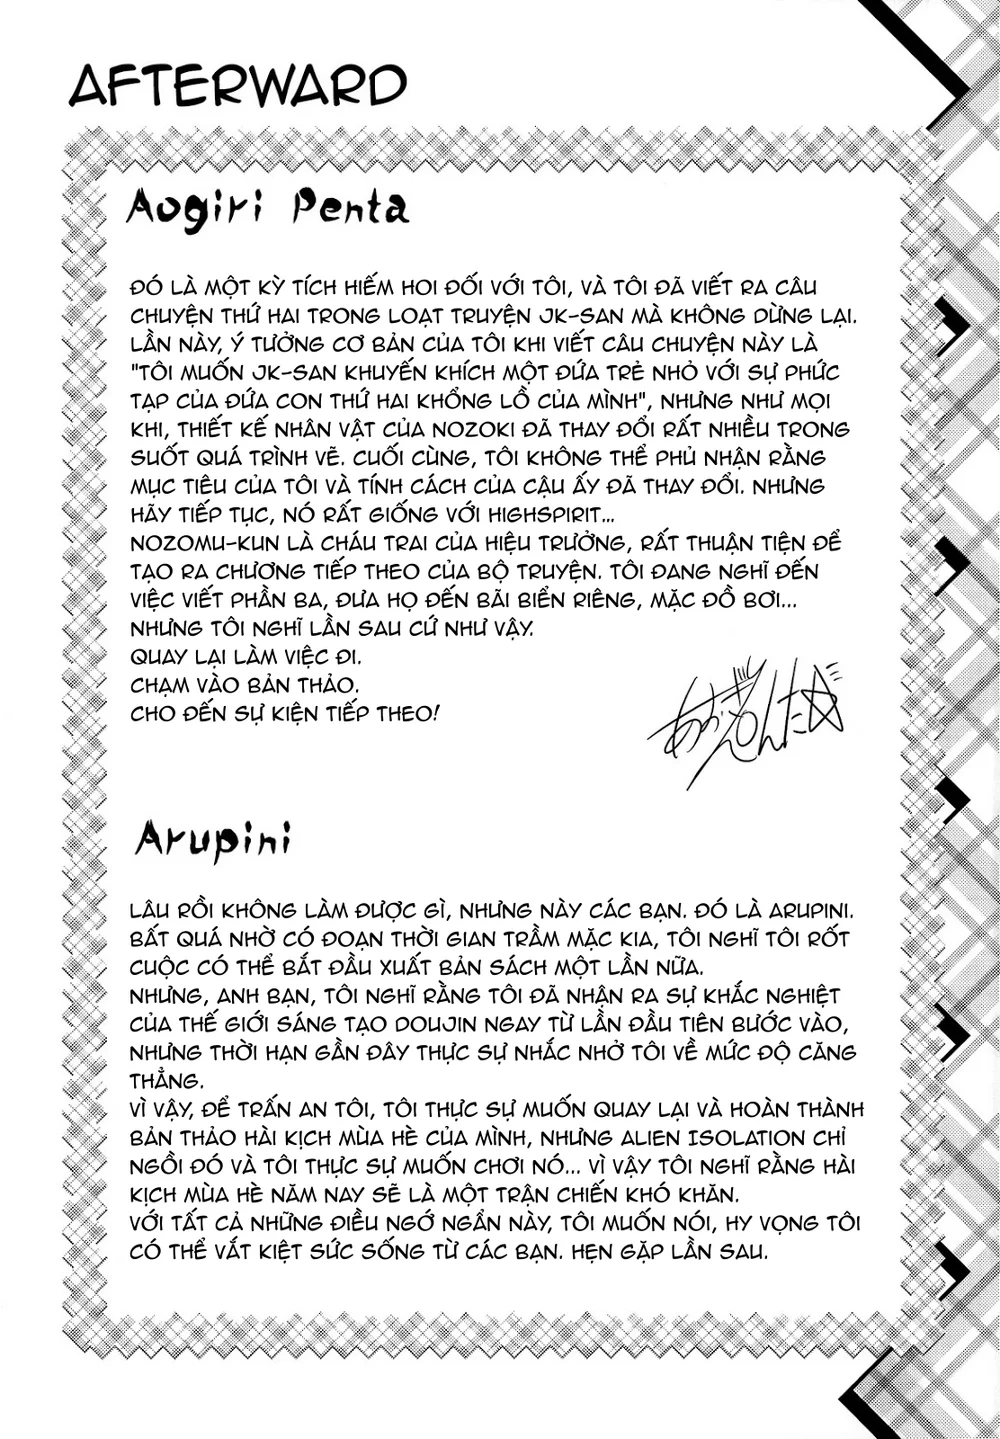 AFTERWARD
Aogiri Penta
ĐÓ LÀ MỘT KỲ TÍCH HIẾM HOI ĐỐI VỚI TÔI, VÀ TÔI ĐÃ VIẾT RA CÂU
CHUYỆN THỨ HAI TRONG LOẠT TRUYỆN JK-SAN MÀ KHÔNG DỪNG LẠI.
LẦN NÀY, Ý TƯỞNG CƠ BẢN CỦA TÔI KHI VIẾT CÂU CHUYỆN NÀY LÀ
"TÔI MUỐN JK-SAN KHUYẾN KHÍCH MỘT ĐỨA TRẺ NHỎ VỚI SỰ PHỨC
TẠP CỦA ĐỨA CON THỨ HAI KHỔNG LỒ CỦA MÌNH", NHƯNG NHƯ MỌI
KHI, THIẾT KẾ NHÂN VẬT CỦA NOZOKI ĐÃ THAY ĐỔI RẤT NHIỀU TRONG
SUỐT QUÁ TRÌNH VẼ. CUỐI CÙNG, TÔI KHÔNG THỂ PHỦ NHẬN RẰNG
MỤC TIÊU CỦA TÔI VÀ TÍNH CÁCH CỦA CẬU ẤY ĐÃ THAY ĐỔI. NHƯNG
HÃY TIẾP TỤC, NÓ RẤT GIỐNG VỚI HIGHSPIRIT...
NOZOMU-KUN LÀ CHÁU TRAI CỦA HIỆU TRƯỞNG, RẤT THUẬN TIỆN ĐỂ
TẠO RA CHƯƠNG TIẾP THEO CỦA BỘ TRUYỆN. TÔI ĐANG NGHĨ ĐẾN
VIỆC VIẾT PHẦN BA, ĐƯA HỌ ĐẾN BÃI BIỂN RIÊNG, MẶC ĐỒ BƠI...
NHƯNG TÔI NGHĨ LẦN SAU CỨ NHƯ VẬY.
QUAY LẠI LÀM VIỆC ĐI.
CHẠM VÀO BẢN THẢO.
CHO ĐẾN SỰ KIỆN TIẾP THEO!
Arupini
LÂU RỒI KHÔNG LÀM ĐƯỢC GÌ, NHƯNG NÀY CÁC BẠN. ĐÓ LÀ ARUPINI.
BẤT QUÁ NHỜ CÓ ĐOẠN THỜI GIAN TRẦM MẶC KIA, TÔI NGHĨ TÔI RỐT
CUỘC CÓ THỂ BẮT ĐẦU XUẤT BẢN SÁCH MỘT LẦN NỮA.
NHƯNG, ANH BẠN, TÔI NGHĨ RẰNG TÔI ĐÃ NHẬN RA SỰ KHẮC NGHIỆT
CỦA THẾ GIỚI SÁNG TẠO DOUJIN NGAY TỪ LẦN ĐẦU TIÊN BƯỚC VÀO,
NHƯNG THỜI HẠN GẦN ĐÂY THỰC SỰ NHẮC NHỞ TÔI VỀ MỨC ĐỘ CĂNG
THẲNG.
VÌ VẬY, ĐỂ TRẤN AN TÔI, TÔI THỰC SỰ MUỐN QUAY LẠI VÀ HOÀN THÀNH
BẢN THẢO HÀI KỊCH MÙA HÈ CỦA MÌNH, NHƯNG ALIEN ISOLATION CHỈ
NGỒI ĐÓ VÀ TÔI THỰC SỰ MUỐN CHƠI NÓ... VÌ VẬY TÔI NGHĨ RẰNG HÀI
KỊCH MÙA HÈ NĂM NAY SẼ LÀ MỘT TRẬN CHIẾN KHÓ KHĂN.
VỚI TẤT CẢ NHỮNG ĐIỀU NGỚ NGẨN NÀY, TÔI MUỐN NÓI, HY VỌNG TÔI
CÓ THỂ VẮT KIỆT SỨC SỐNG TỪ CÁC BẠN. HẸN GẶP LẦN SAU.